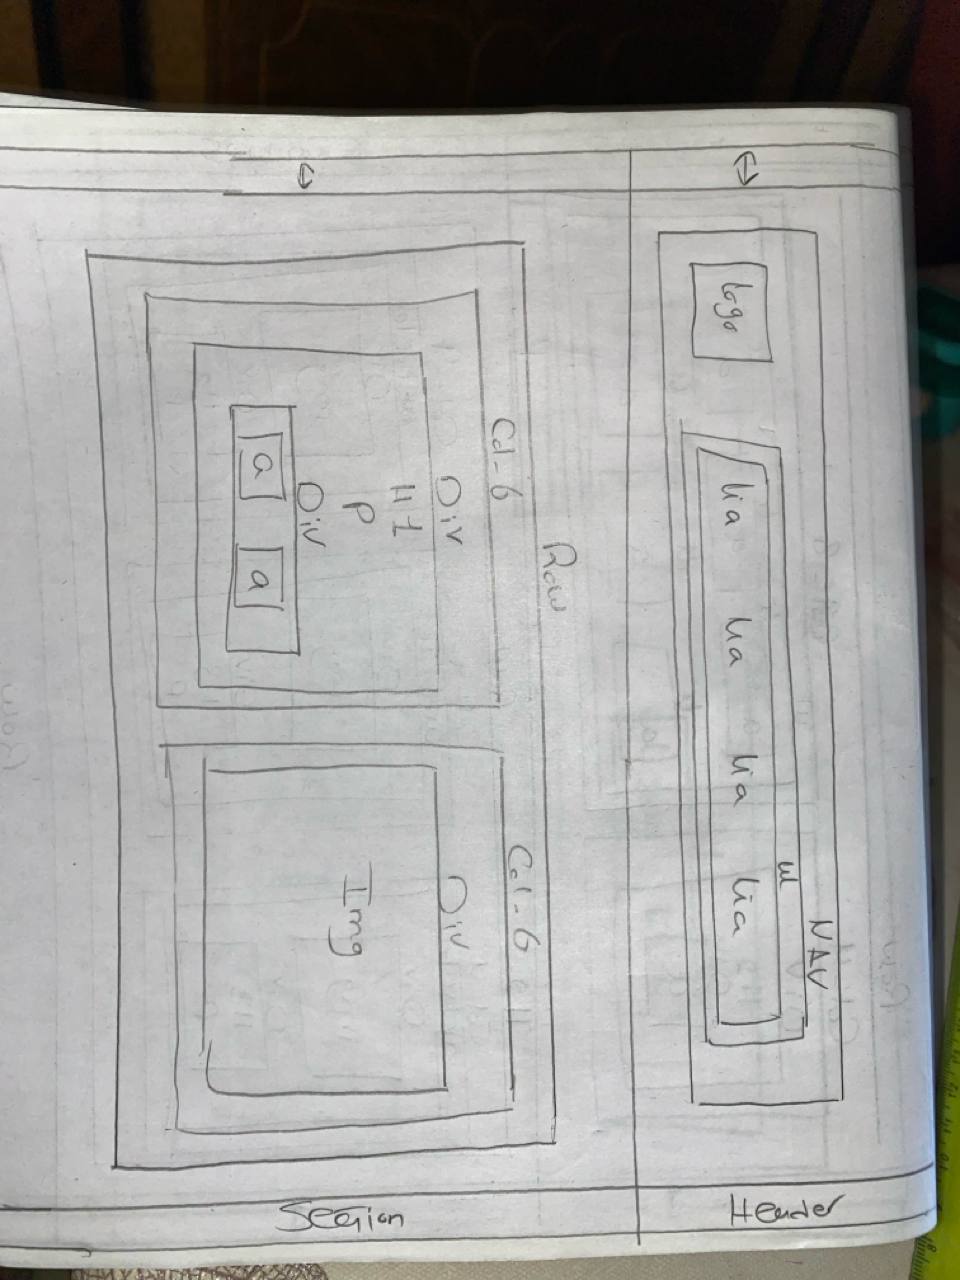 Header
NAV
ul
logo
lia lia lia lia
Section
Row
Col-6
Div
H1
P
Div
a a
Col-6
Div
Img